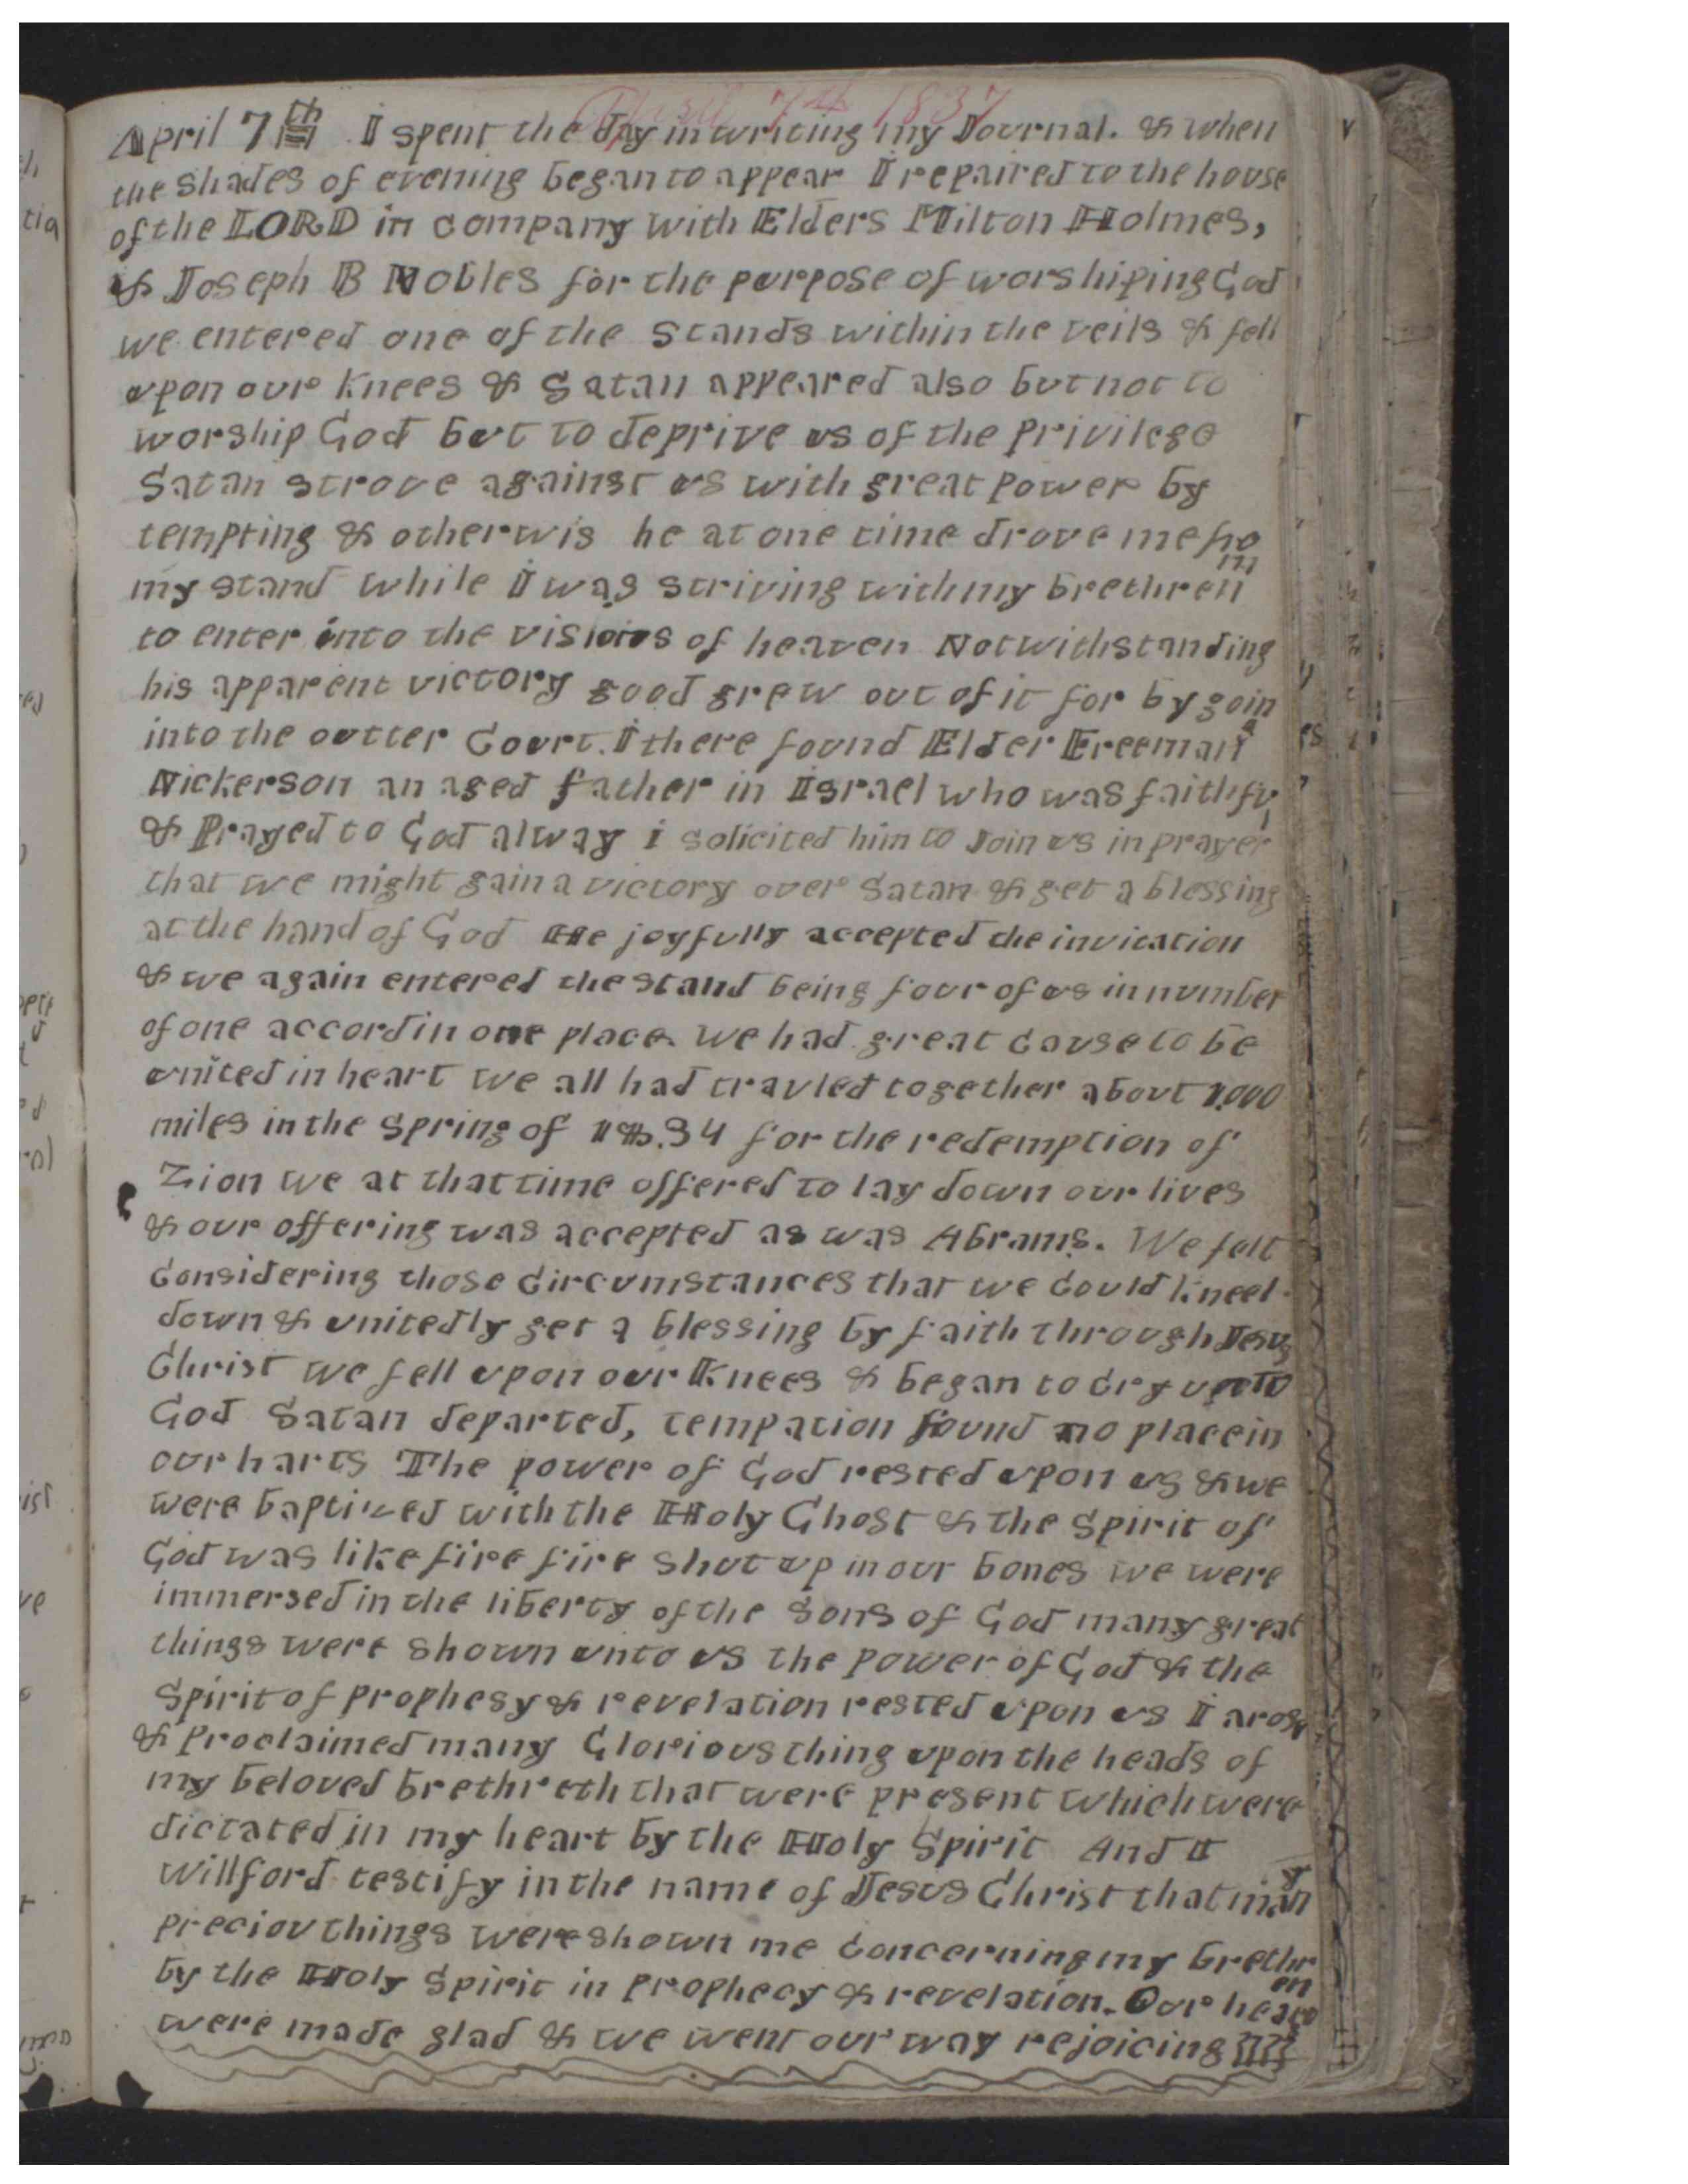 April 7th 1837
April 7th I spent the day in writing my Journal. & when
the shades of evening began to appear I repaired to the house
of the LORD in company with Elders Milton Holmes,
& Joseph B Nobles for the purpose of worshiping God
we entered one of the stands within the veils & fell
upon our knees & Satan appeared also but not to
worship God but to deprive us of the privilege
Satan strove against us with great power by
tempting & otherwis he at one time drove me from
my stand while I was striving with my brethren
to enter into the visions of heaven Notwithstanding
his apparent victory good grew out of it for by going
into the outter Court. I there found Elder Freeman
Nickerson an aged father in Israel who was faithful
& Prayed to God alway i solicited him to Join us in prayer
that we might gain a victory over Satan & get a blessing
at the hand of God He joyfully accepted the invitation
& we again entered the stand being four of us in number
of one accord in one place. we had great cause to be
united in heart we all had travled together about 1,000
miles in the spring of 18.34 for the redemption of
Zion we at that time offered to lay down our lives
& our offering was accepted as was Abrams. We felt
Considering those circumstances that we could kneel
down & unitedly get a blessing by faith through Jesus
Christ we fell upon our Knees & began to cry unto
God Satan departed, tempation found no place in
our harts The power of God rested upon us & we
were baptized with the Holy Ghost & the spirit of
God was like fire fire shut up in our bones we were
immersed in the liberty of the sons of God many great
things were shown unto us the power of God & the
spirit of prophesy & revelation rested upon us I arose
& Proclaimed many Glorious thing upon the heads of
my beloved brethreth that were present which were
dictated in my heart by the Holy Spirit And I
Willford testify in the name of Jesus Christ that many
preciou things were shown me concerning my brethren
by the Holy Spirit in Prophecy & revelation. Our hearts
were made glad & we went our way rejoicing